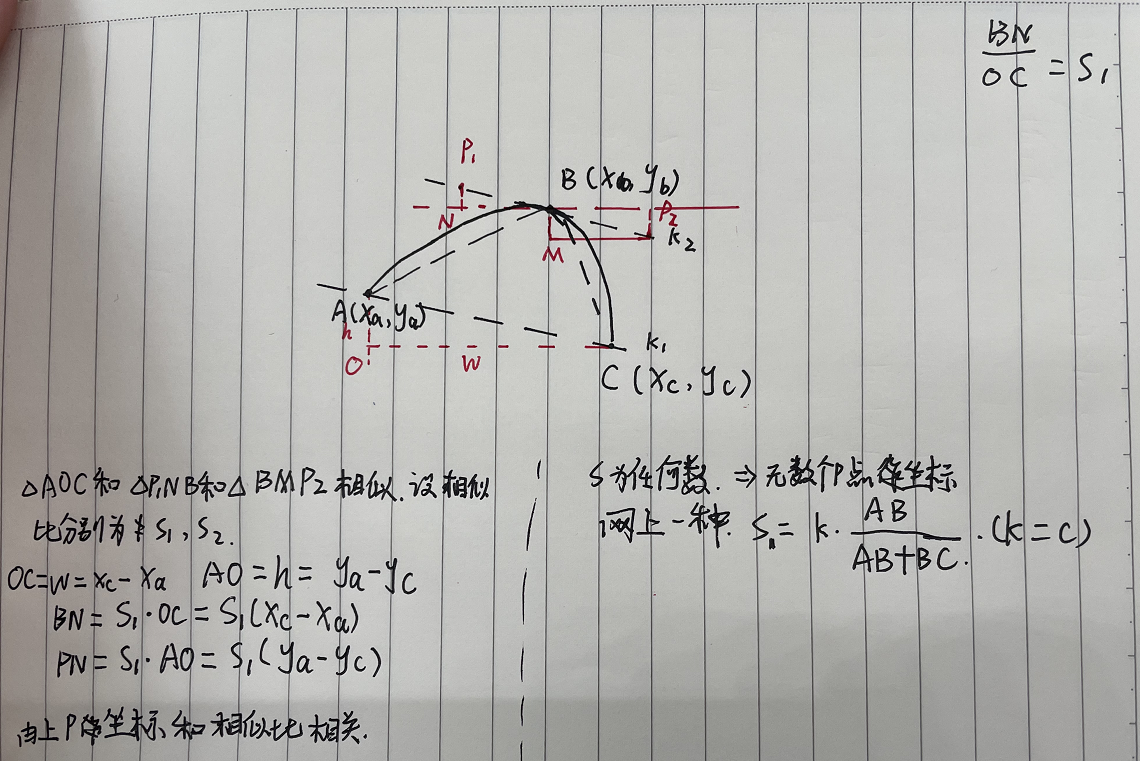 BN/OC = S₁
P₁
B (Xb, yb)
N
P₂
M
k₂
A(Xa, ya)
h
k₁
O
W
C (Xc, yc)
△AOC和△P₁NB和△BMP₂相似.设相似
比分别为 S₁, S₂.
OC=W=Xc-Xa AO=h=ya-yc
BN=S₁·OC=S₁(Xc-Xa)
PN=S₁·AO=S₁(ya-yc)
由上P 坐标和相似比相关.
S为任何数.⇒无数个P点 坐标
网上一种. S₁=k·AB/(AB+BC).(k=C)